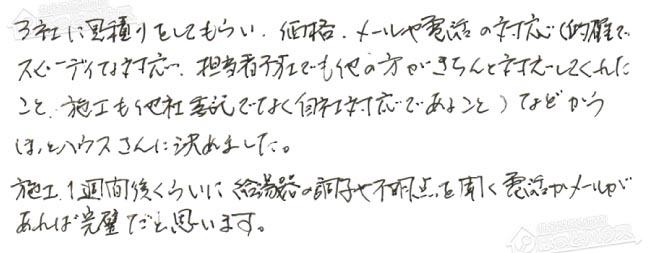 3社に見積りをしてもらい、価格、メールや電話の対応(的確で
スピーディな対応、担当者不在でも他の方がきちんと対応してくれた
こと、施工も他社委託でなく自社対応であること)などから
ほっとハウスさんに決めました。
施工、1週間後くらいに給湯器の調子や不明点を聞く電話かメールが
あれば完璧だと思います。